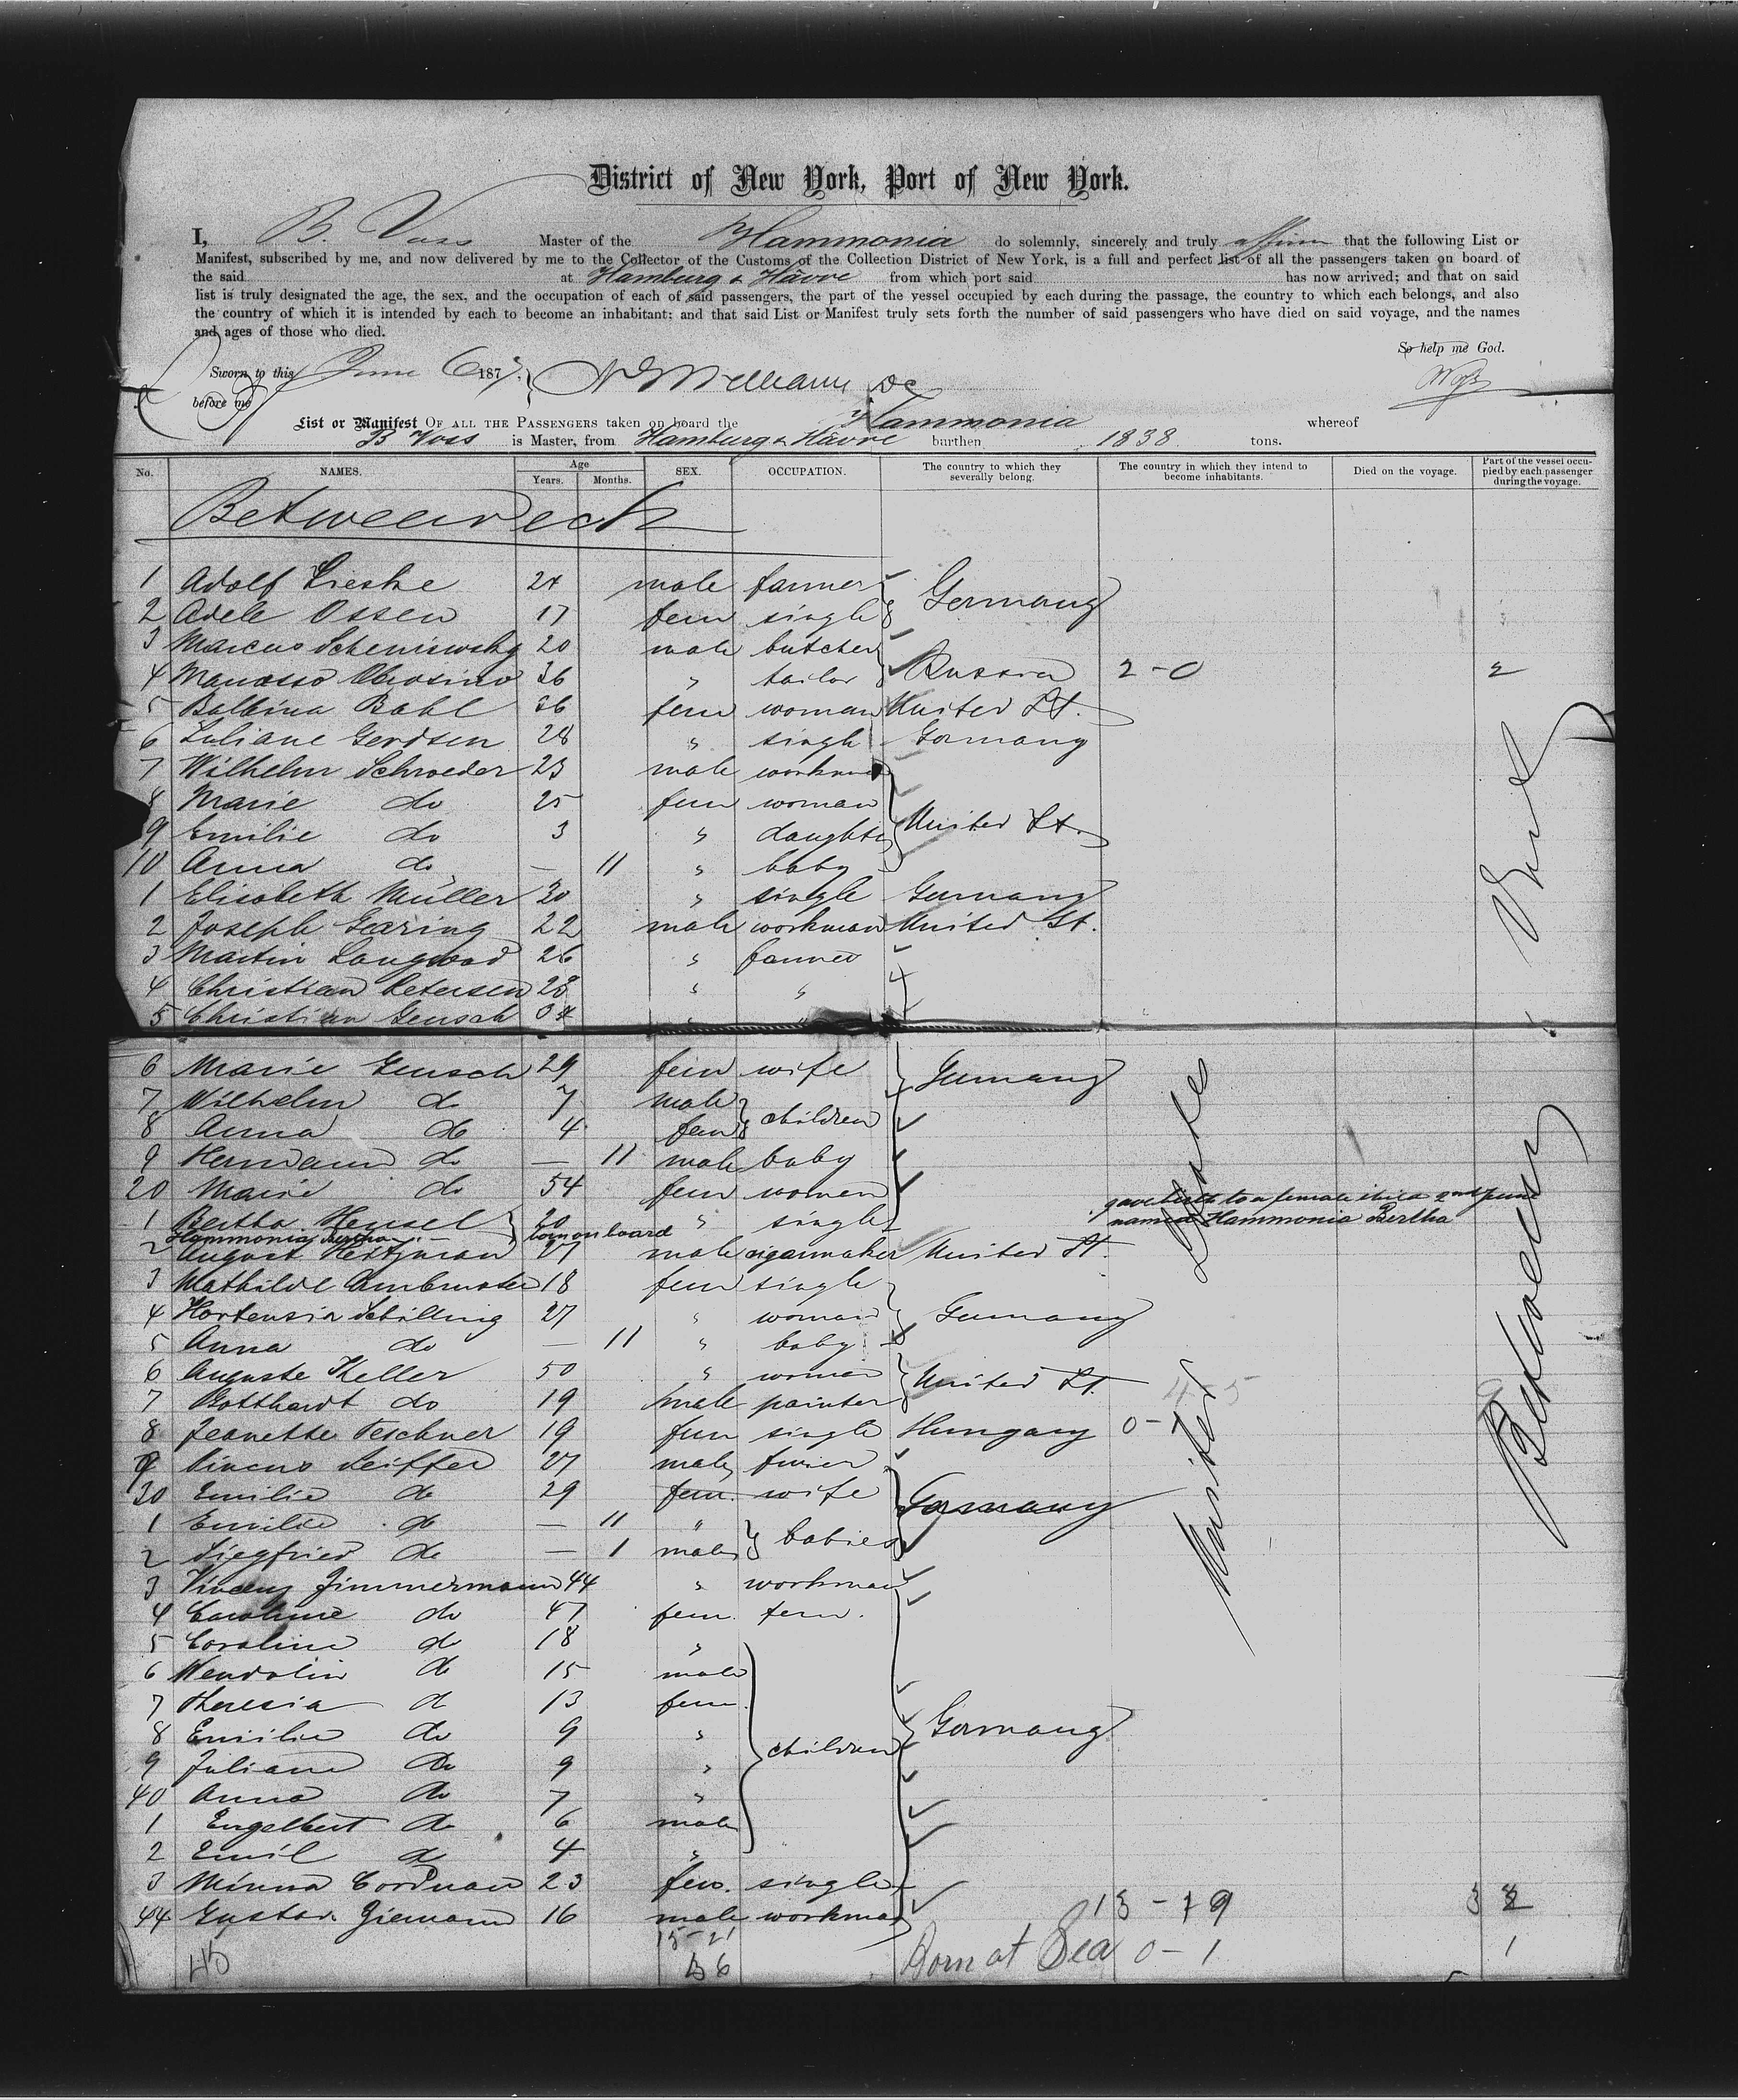 District of New York, Port of New York.
I, B. Voss Master of the Hammonia do solemnly, sincerely and truly affirm that the following List or
Manifest, subscribed by me, and now delivered by me to the Collector of the Customs of the Collection District of New York, is a full and perfect list of all the passengers taken on board of
the said at Hamburg & Hâvre from which port said has now arrived; and that on said
list is truly designated the age, the sex, and the occupation of each of said passengers, the part of the vessel occupied by each during the passage, the country to which each belongs, and also
the country of which it is intended by each to become an inhabitant; and that said List or Manifest truly sets forth the number of said passengers who have died on said voyage, and the names
and ages of those who died.
So help me God.
Sworn to this June 6 187
before me
List or Manifest OF ALL THE PASSENGERS taken on board the Hammonia whereof
B Voss is Master, from Hamburg & Hâvre burthen 1838 tons.
No. NAMES. Age Years. Months. SEX. OCCUPATION. The country to which they severally belong. The country in which they intend to become inhabitants. Died on the voyage. Part of the vessel occupied by each passenger during the voyage.
Betweendeck
1 Adolf Lieske 24 male farmer Germany
2 Adele Ossen 17 fem single
3 Marcus 20 male butcher
4 36 " tailor Russia 2-0 2
5 Balbina Bahl 36 fem woman United St.
6 Juliane Gerdsen 28 " single Germany
7 Wilhelm Schroeder 23 male workman
8 Marie do 25 fem woman United St.
9 Emilie do 3 " daughter
10 Anna do — 11 " baby
1 Elisabeth Müller 30 " single Germany
2 Joseph Gearing 22 male workman United St.
3 Martin 26 " farmer
4 Christian Petersen 28 " "
5 Christian Gensch "
6 Marie Gensch 29 fem wife Germany
7 Wilhelm do 7 male children
8 Anna do 4 fem
9 Hermann do — 11 male baby
20 Marie do 54 fem women
1 Bertha Hensel 20 " single gave birth to a female child 2nd June
Hammonia Bertha born on board named Hammonia Bertha
2 August 27 male cigarmaker United St.
3 Mathilde 18 fem single
4 Hortensia Schilling 27 " woman Germany
5 Anna do — 11 " baby
6 Auguste Keller 50 " woman United St.
7 Gotthardt do 19 male painter
8 Jeanette Teschner 19 fem single Hungary 0-1
9 27 male
30 Emilie do 29 fem. wife Germany
1 Emilie do — 11 " babies
2 Siegfried do — 1 male
3 Vincenz Zimmermann 44 " workman
4 Caroline do 47 fem. fem.
5 Caroline do 18 "
6 Wendolin do 15 male
7 Theresia do 13 fem
8 Emilie do 9 " children Germany
9 Juliane do 9 "
40 Anna do 7 "
1 Engelbert do 6 male
2 Emil do 4 "
3 Minna Cordman 23 fem. single
44 Gustav Ziemann 16 male workman 13-19
15-21
45 36 Born at Sea 0-1 1
United States
Betweendeck